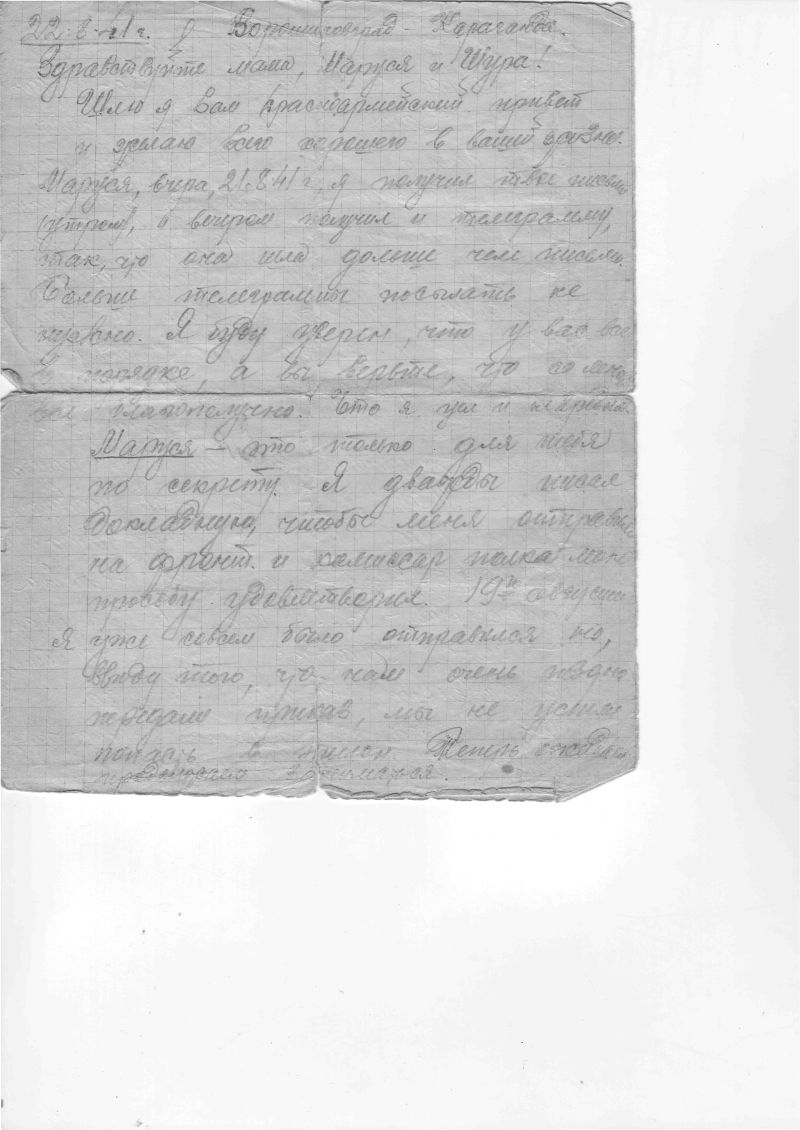 22.8.41 г. Ворошиловград - Караганда.
Здравствуйте мама, Маруся и Шура!
Шлю я вам красноармейский привет
и желаю всего хорошего в вашей жизни.
Маруся, вчера, 21.8.41 г. я получил твое письмо
(утром), а вечером получил и телеграмму,
так, что она шла дольше чем письмо.
Больше телеграммы посылать не
нужно. Я буду уверен, что у вас все
в порядке, а вы верьте, что со мною
все благополучно. Что я ем и
Маруся — это только для тебя
по секрету. Я дважды писал
докладную, чтобы меня отправили
на фронт и комиссар полка мою
просьбу удовлетворил. 19го августа
я уже совсем было отправился но,
ввиду того, что нам очень поздно
передали приказ, мы не успели
попасть в Теперь